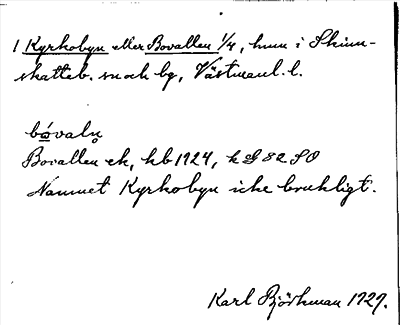 1 Kyrkobyn eller Bovallen 1/4, hmn i Skinn-
skatteb. sn och bg, Västmanl. l.
bóvalṇ
Bovallen ek, kb 1924, k GS 82 SO
Namnet Kyrkobyn icke brukligt.
Karl Björkman 1929.